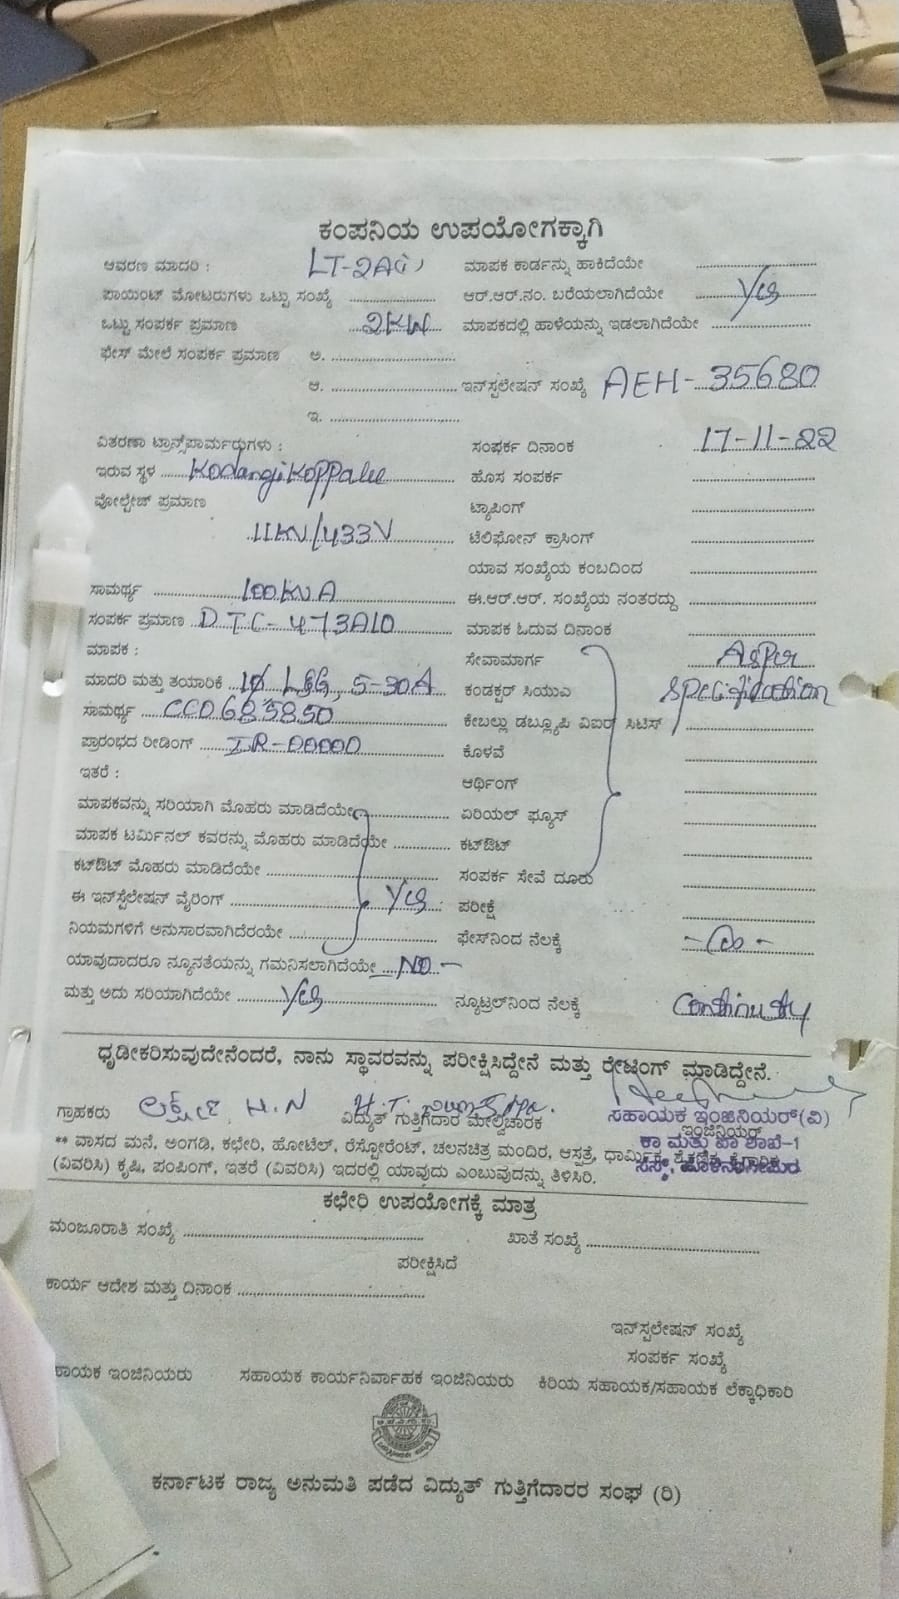 ಕಂಪನಿಯ ಉಪಯೋಗಕ್ಕಾಗಿ
ಆವರಣ ಮಾದರಿ : LT-2A(i) ಮಾಪಕ ಕಾರ್ಡನ್ನು ಹಾಕಿದೆಯೇ
ಪಾಯಿಂಟ್ ಮೋಟರುಗಳು ಒಟ್ಟು ಸಂಖ್ಯೆ ಆರ್.ಆರ್.ನಂ. ಬರೆಯಲಾಗಿದೆಯೇ Yes
ಒಟ್ಟು ಸಂಪರ್ಕ ಪ್ರಮಾಣ 2KW ಮಾಪಕದಲ್ಲಿ ಹಾಳೆಯನ್ನು ಇಡಲಾಗಿದೆಯೇ
ಫೇಸ್ ಮೇಲೆ ಸಂಪರ್ಕ ಪ್ರಮಾಣ ಅ.
ಆ. ಇನ್‌ಸ್ಪಲೇಷನ್ ಸಂಖ್ಯೆ AEH-35680
ಇ.
ವಿತರಣಾ ಟ್ರಾನ್ಸ್‌ಫಾರ್ಮರುಗಳು : ಸಂಪರ್ಕ ದಿನಾಂಕ 17-11-22
ಇರುವ ಸ್ಥಳ Kodangikoppalu ಹೊಸ ಸಂಪರ್ಕ
ವೋಲ್ಟೇಜ್ ಪ್ರಮಾಣ ಟ್ಯಾಪಿಂಗ್
11KV/433V ಟೆಲಿಫೋನ್ ಕ್ರಾಸಿಂಗ್
ಯಾವ ಸಂಖ್ಯೆಯ ಕಂಬದಿಂದ
ಸಾಮರ್ಥ್ಯ 100KVA ಈ.ಆರ್.ಆರ್. ಸಂಖ್ಯೆಯ ನಂತರದ್ದು
ಸಂಪರ್ಕ ಪ್ರಮಾಣ DTC-4-13A10 ಮಾಪಕ ಓದುವ ದಿನಾಂಕ
ಮಾಪಕ : ಸೇವಾಮಾರ್ಗ Asper
ಮಾದರಿ ಮತ್ತು ತಯಾರಿಕೆ 1Ø L&G, 5-30A ಕಂಡಕ್ಟರ್ ಸಿಯುವಿ specification
ಸಾಮರ್ಥ್ಯ CC0683850 ಕೇಬಲ್ಲು ಡಬ್ಲ್ಯೂಪಿ ವಿಐಆರ್ ಸಿಟಿಸ್
ಪ್ರಾರಂಭದ ರೀಡಿಂಗ್ IR-00000 ಕೊಳವೆ
ಇತರೆ : ಆರ್ಥಿಂಗ್
ಮಾಪಕವನ್ನು ಸರಿಯಾಗಿ ಮೊಹರು ಮಾಡಿದೆಯೇ ಏರಿಯಲ್ ಫ್ಯೂಸ್
ಮಾಪಕ ಟರ್ಮಿನಲ್ ಕವರನ್ನು ಮೊಹರು ಮಾಡಿದೆಯೇ ಕಟ್‌ಔಟ್
ಕಟ್‌ಔಟ್ ಮೊಹರು ಮಾಡಿದೆಯೇ ಸಂಪರ್ಕ ಸೇವೆ ದೂರು
ಈ ಇನ್‌ಸ್ಟೆಲೇಷನ್ ವೈರಿಂಗ್ Yes ಪರೀಕ್ಷೆ
ನಿಯಮಗಳಿಗೆ ಅನುಸಾರವಾಗಿದೆರಯೇ ಫೇಸ್‌ನಿಂದ ನೆಲಕ್ಕೆ
ಯಾವುದಾದರೂ ನ್ಯೂನತೆಯನ್ನು ಗಮನಿಸಲಾಗಿದೆಯೇ NO
ಮತ್ತು ಅದು ಸರಿಯಾಗಿದೆಯೇ Yes ನ್ಯೂಟ್ರಲ್‌ನಿಂದ ನೆಲಕ್ಕೆ Continuity
ಧೃಡೀಕರಿಸುವುದೇನೆಂದರೆ, ನಾನು ಸ್ಥಾವರವನ್ನು ಪರೀಕ್ಷಿಸಿದ್ದೇನೆ ಮತ್ತು ರೇಟಿಂಗ್ ಮಾಡಿದ್ದೇನೆ.
ಗ್ರಾಹಕರು H.N ವಿದ್ಯುತ್ ಗುತ್ತಿಗೆದಾರ ಮೇಲ್ವಿಚಾರಕ ಸಹಾಯಕ ಇಂಜಿನಿಯರ್(ವಿ)
ಕಾ ಮತ್ತು ಪಾ ಶಾಖೆ-1
** ವಾಸದ ಮನೆ, ಅಂಗಡಿ, ಕಛೇರಿ, ಹೋಟೆಲ್, ರೆಸ್ಟೋರೆಂಟ್, ಚಲನಚಿತ್ರ ಮಂದಿರ, ಆಸ್ಪತ್ರೆ, ಧಾರ್ಮಿಕ, ಶೈಕ್ಷಣಿಕ, ಕೈಗಾರಿಕಾ
(ವಿವರಿಸಿ) ಕೃಷಿ, ಪಂಪಿಂಗ್, ಇತರೆ (ವಿವರಿಸಿ) ಇದರಲ್ಲಿ ಯಾವುದು ಎಂಬುವುದನ್ನು ತಿಳಿಸಿರಿ.
ಕಛೇರಿ ಉಪಯೋಗಕ್ಕೆ ಮಾತ್ರ
ಮಂಜೂರಾತಿ ಸಂಖ್ಯೆ ಖಾತೆ ಸಂಖ್ಯೆ
ಪರೀಕ್ಷಿಸಿದೆ
ಕಾರ್ಯ ಆದೇಶ ಮತ್ತು ದಿನಾಂಕ
ಇನ್‌ಸ್ಪಲೇಷನ್ ಸಂಖ್ಯೆ
ಸಂಪರ್ಕ ಸಂಖ್ಯೆ
ಇಂಜಿನಿಯರು ಸಹಾಯಕ ಕಾರ್ಯನಿರ್ವಾಹಕ ಇಂಜಿನಿಯರು ಕಿರಿಯ ಸಹಾಯಕ/ಸಹಾಯಕ ಲೆಕ್ಕಾಧಿಕಾರಿ
ಕರ್ನಾಟಕ ರಾಜ್ಯ ಅನುಮತಿ ಪಡೆದ ವಿದ್ಯುತ್ ಗುತ್ತಿಗೆದಾರರ ಸಂಘ (ರಿ)